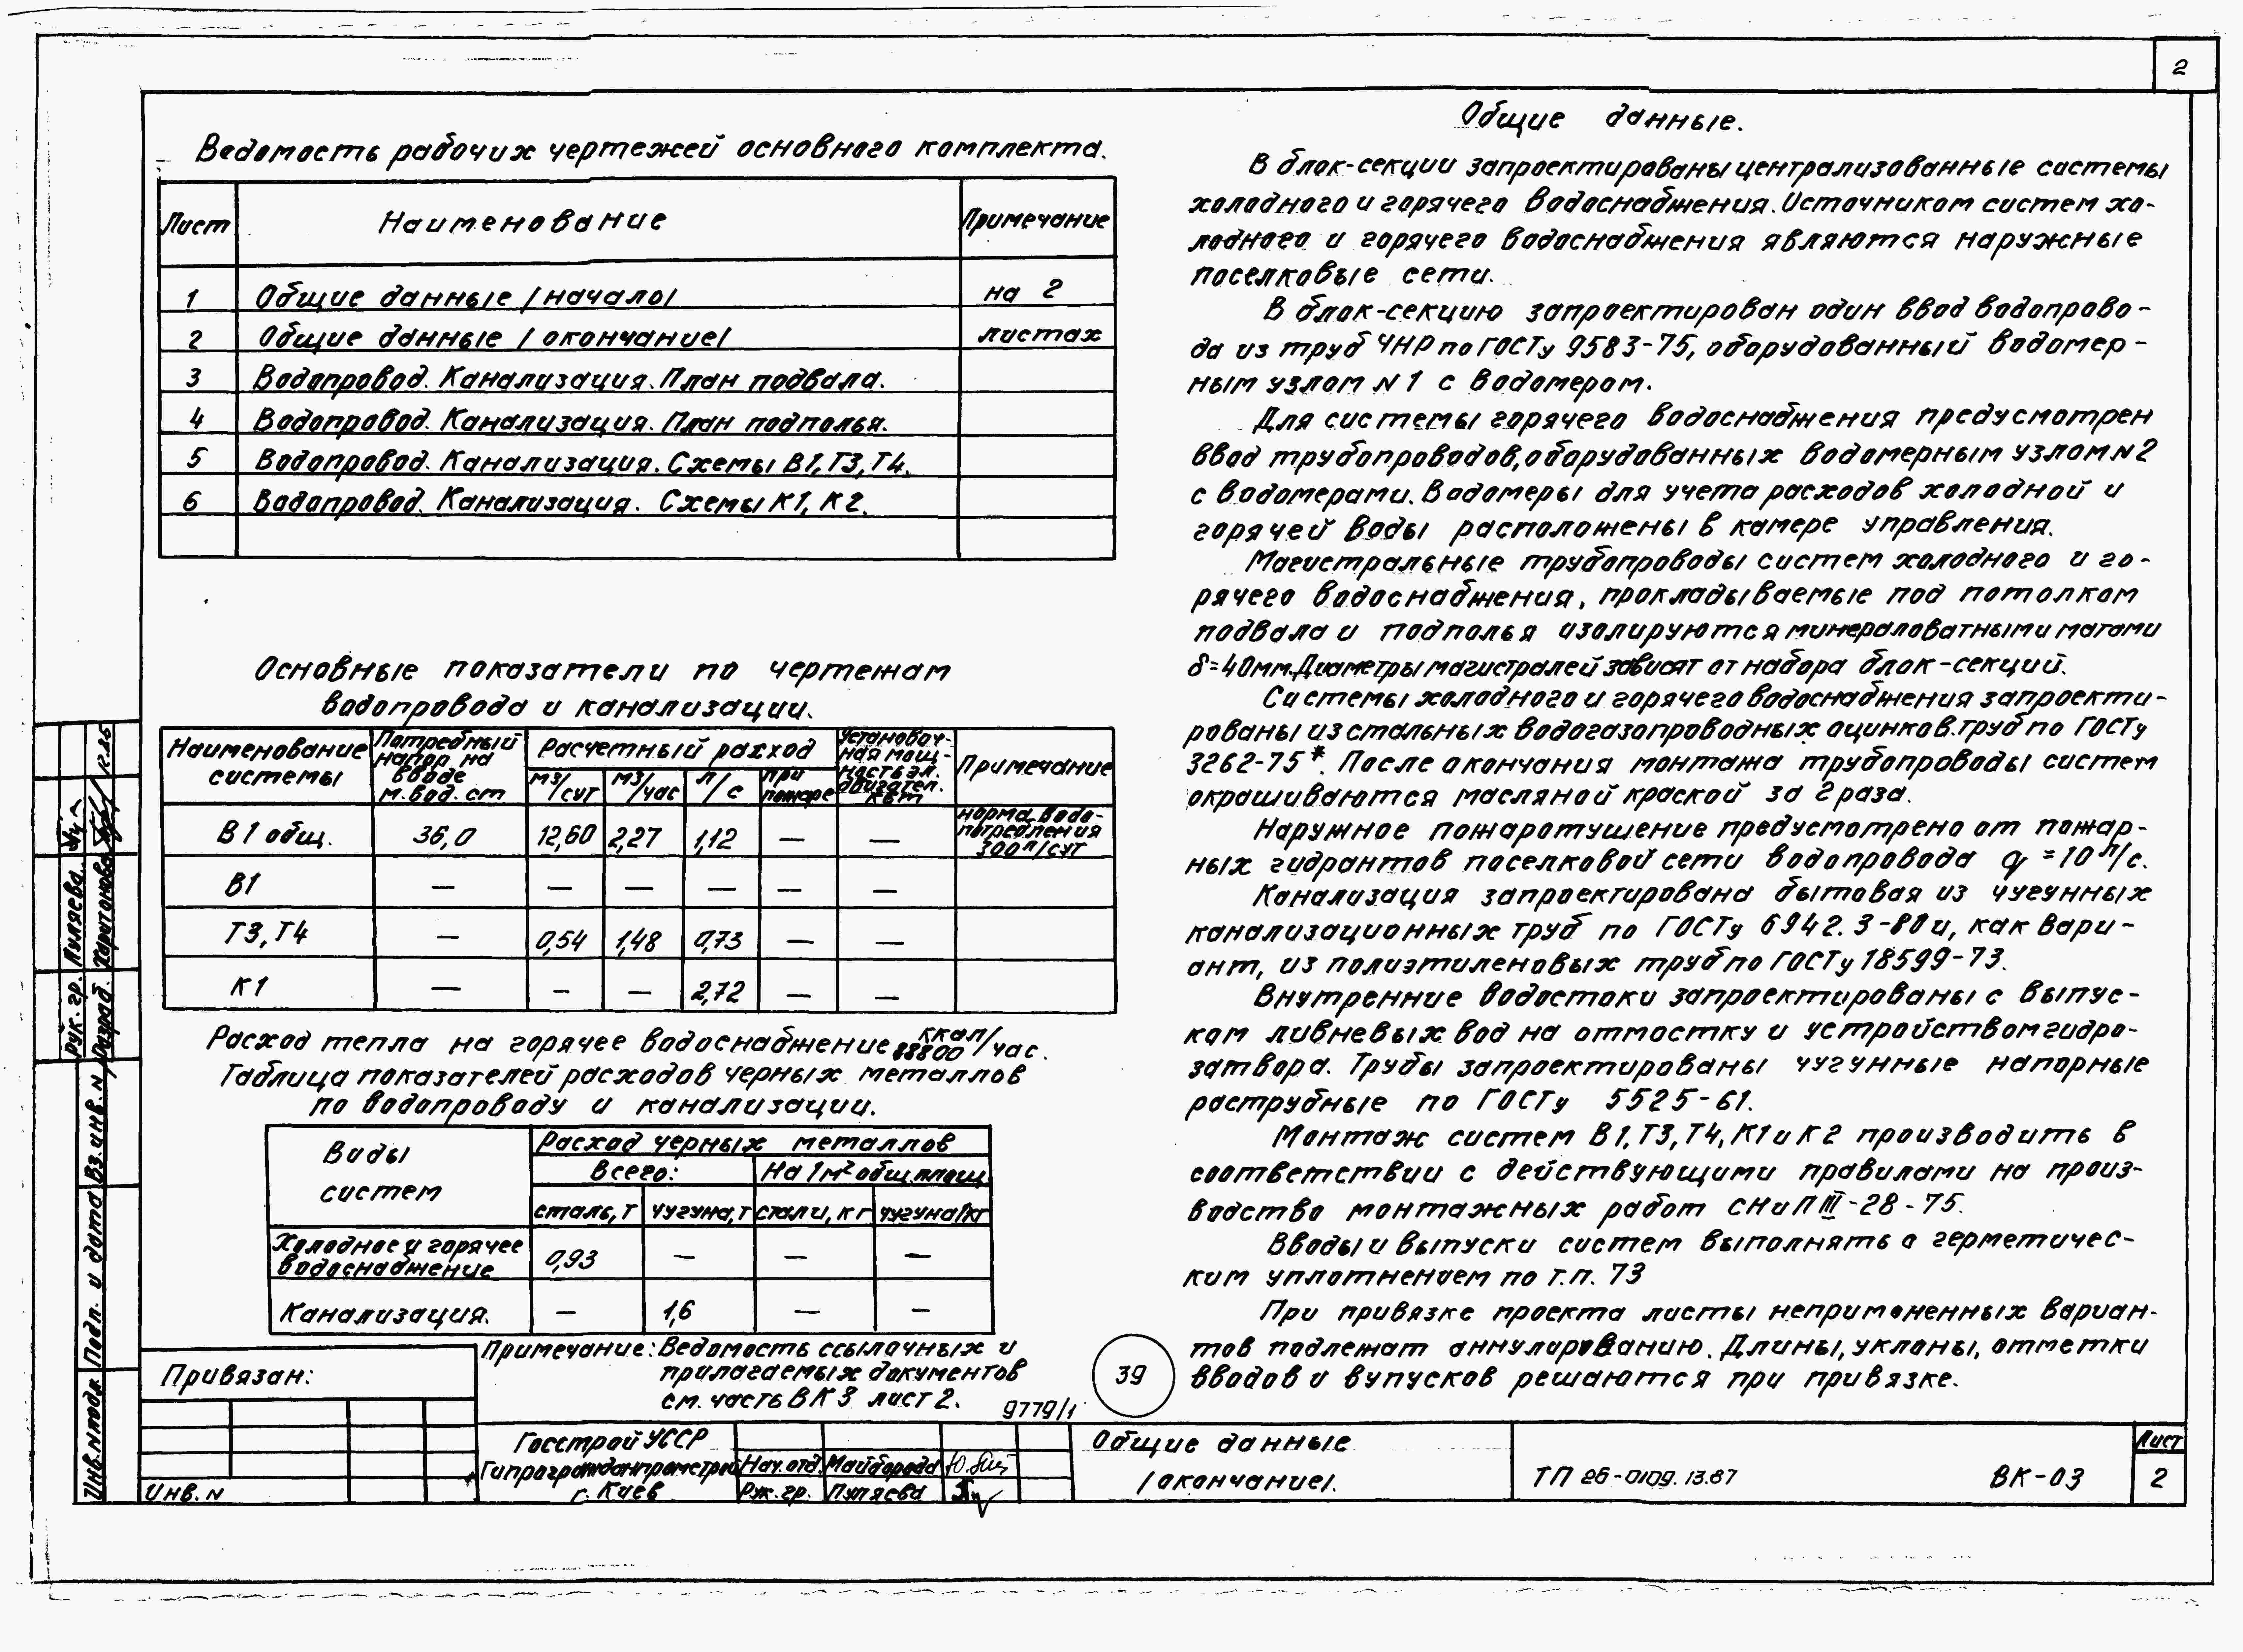 2
Ведомость рабочих чертежей основного комплекта.
Лист Наименование Примечание
1 Общие данные /начало/ на 2
2 Общие данные /окончание/ листах
3 Водопровод. Канализация. План подвала.
4 Водопровод. Канализация. План подполья.
5 Водопровод. Канализация. Схемы В1, Т3, Т4.
6 Водопровод. Канализация. Схемы К1, К2.
Основные показатели по чертежам
водопровода и канализации.
Наименование системы Потребный напор на вводе м.вод.ст Расчетный расход Установоч-ная мощ-ность эл. двигател. квт Примечание
м3/сут м3/час л/с при пожаре
В1 общ. 36,0 12,60 2,27 1,12 — — норма водо-потребления 300 л/сут
В1 — — — — — —
Т3, Т4 — 0,54 1,48 0,73 — —
К1 — — — 2,72 — —
Расход тепла на горячее водоснабжение 88800 ккал/час.
Таблица показателей расходов черных металлов
по водопроводу и канализации.
Виды систем Расход черных металлов
Всего: На 1м2 общ. площ
сталь, т чугуна, т стали, кг чугуна/кг
Холодное и горячее водоснабжение 0,93 — — —
Канализация. — 1,6 — —
Примечание: Ведомость ссылочных и
прилагаемых документов
см. часть ВК 3 лист 2.
9779/1
39
Общие данные.
В блок-секции запроектированы централизованные системы
холодного и горячего водоснабжения. Источником систем хо-
лодного и горячего водоснабжения являются наружные
поселковые сети.
В блок-секцию запроектирован один ввод водопрово-
да из труб ЧНР по ГОСТу 9583-75, оборудованный водомер-
ным узлом N1 с водомером.
Для системы горячего водоснабжения предусмотрен
ввод трубопроводов, оборудованных водомерным узлом N2
с водомерами. Водомеры для учета расходов холодной и
горячей воды расположены в камере управления.
Магистральные трубопроводы систем холодного и го-
рячего водоснабжения, прокладываемые под потолком
подвала и подполья изолируются минераловатными матами
δ=40мм. Диаметры магистралей зависят от набора блок-секций.
Системы холодного и горячего водоснабжения запроекти-
рованы из стальных водогазопроводных оцинков. труб по ГОСТу
3262-75*. После окончания монтажа трубопроводы систем
окрашиваются масляной краской за 2 раза.
Наружное пожаротушение предусмотрено от пожар-
ных гидрантов поселковой сети водопровода q=10 л/с.
Канализация запроектирована бытовая из чугунных
канализационных труб по ГОСТу 6942.3-80 и, как вари-
ант, из полиэтиленовых труб по ГОСТу 18599-73.
Внутренние водостоки запроектированы с выпус-
ком ливневых вод на отмостку и устройством гидро-
затвора. Трубы запроектированы чугунные напорные
раструбные по ГОСТу 5525-61.
Монтаж систем В1, Т3, Т4, К1 и К2 производить в
соответствии с действующими правилами на произ-
водство монтажных работ СНиП III-28-75.
Вводы и выпуски систем выполнять с герметичес-
ким уплотнением по т.п. 73
При привязке проекта листы непримененных вариан-
тов подлежат аннулированию. Длины, уклоны, отметки
вводов и выпусков решаются при привязке.
Рук. гр. Пуляева
Разраб. Харитонова
Инв. N подл. Подп. и дата Вз. инв. N
Привязан:
Инв. N
Госстрой УССР
Гипрогражданпромстрой
г. Киев
Нач. отд. Майборода
Рук. гр. Пуляева
Общие данные
/окончание/.
ТП 26-0109.13.87
ВК-03
Лист
2